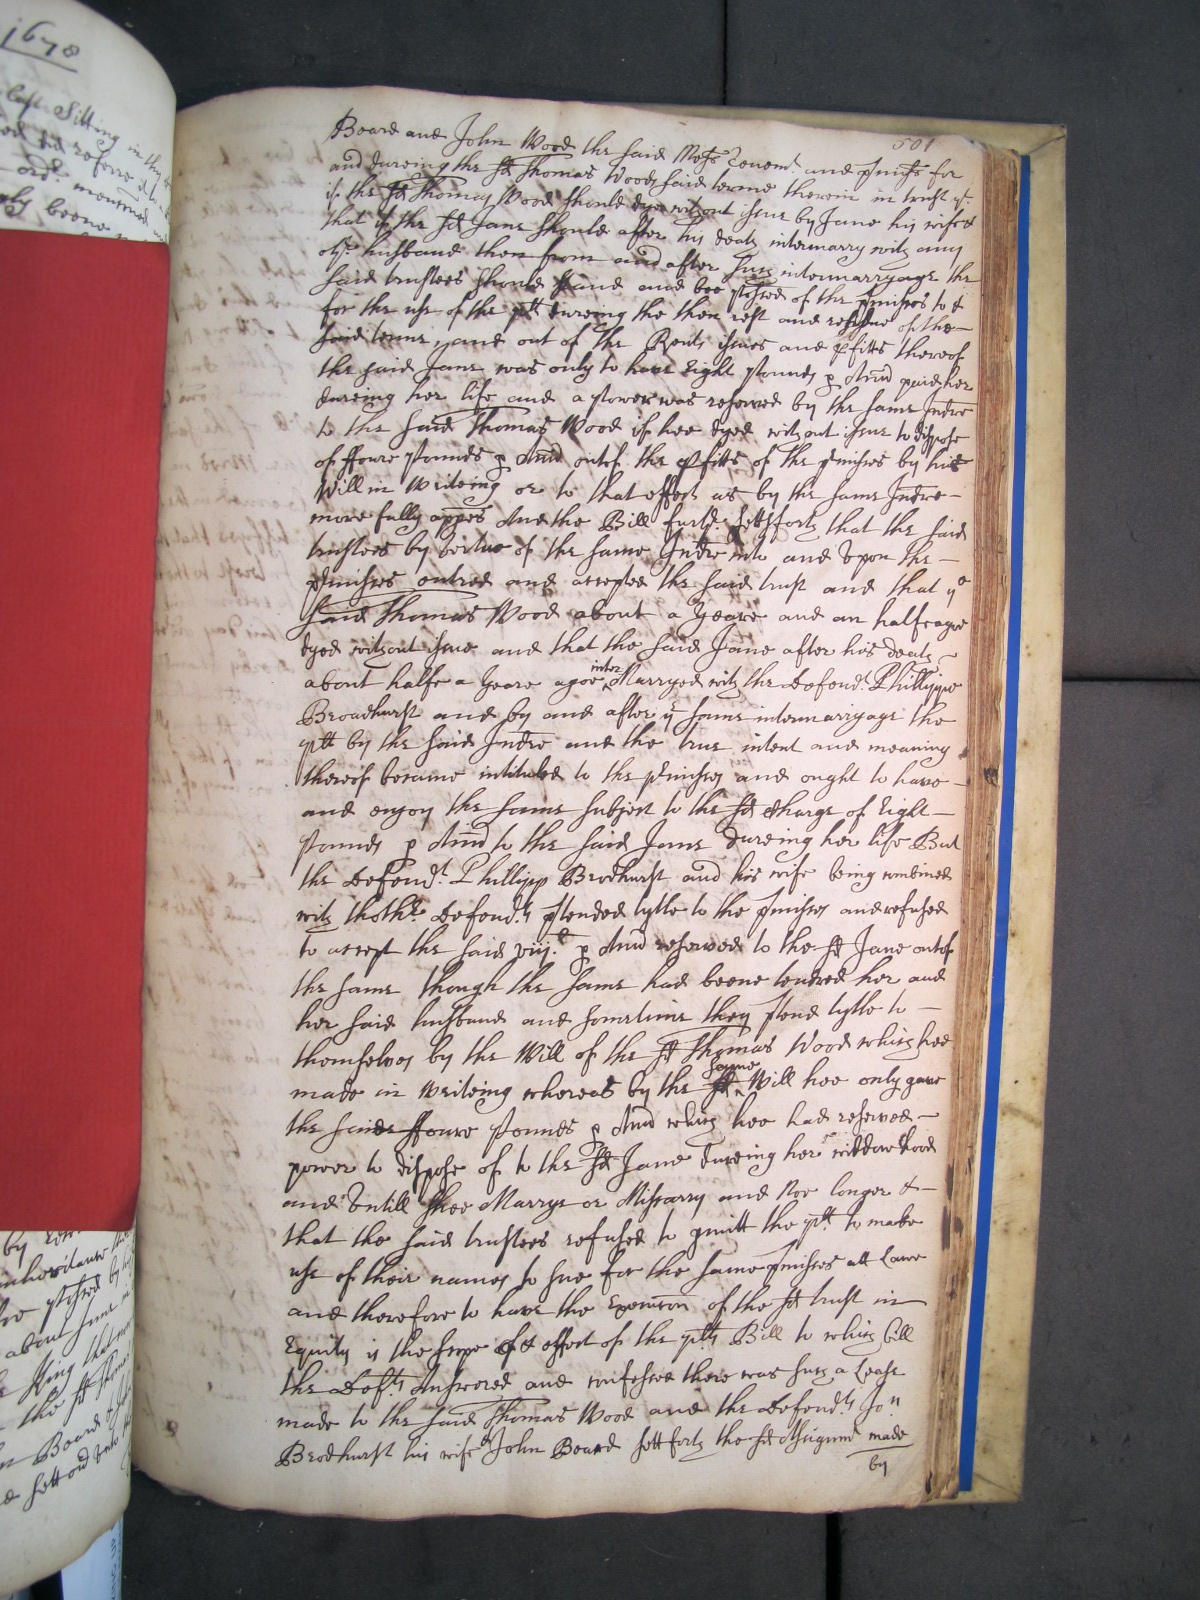 1678
last Sitting in the
did referre it to
ord. mencioned
beene
501
Board and John Wood the said Messe Tenemt. and pmiss for
and dureing the sd Thomas Woods said terme therein in trust yt.
if the sd Thomas Wood should dye without issue by Jane his wife &
that if the sd Jane should after his death intermarry with any
othr. husband then from and after such intermarryage the
said trustees should stand and bee possed of the pmisses to &
for the use of the plt dureing the then rest and residue of the
said terme, and out of the Rents issues and pfitts thereof
the said Jane was only to have Eight pounds p Annu paid her
dureing her life and a power was reserved by the same Indre
to the said Thomas Wood if hee dyed without issue to dispose
of ffoure pounds p Annu out of the pfitts of the pmisses by his
Will in Writeing or to that effect as by the same Indre
more fully appes And the Bill furthr. setts forth that the said
trustees by vertue of the same Indre into and upon the
pmisses entred and accepted the said trust and that ye
said Thomas Wood about a Yeare and an halfe agoe
dyed without issue and that the said Jane after his death
about halfe a Yeare agoe inter Marryed with the Defendt. Phillipp
Broadhurst and by and after ye same intermarryage the
plt by the said Indre and the true intent and meaning
thereof became intituled to the pmisses and ought to have
and enjoy the same subject to the sd charge of Eight
pounds p Annu to the said Jane dureing her life But
the Defendt. Phillipp Brodhurst and his wife being combined
with thothr. Defendts ptended tytle to the pmisses and refused
to accept the said viijl. p Annu reserved to the sd Jane out of
the same though the same had beene tendred her and
her said husband and sometime they ptend tytle to
themselves by the Will of the sd Thomas Wood which hee
made in Writeing whereas by the sd same Will hee only gave
the said ffoure pounds p Annu which hee had reserved
power to dispose of to the sd Jane dureing her widdowhood
and Untill shee Marrye or Miscarry and noe longer &
that the said trustees refused to pmitt the plt to make
use of their names to sue for the same pmisses att Lawe
and therefore to have the Execucon of the sd trust in
Equity is the scope & effect of the plts Bill to which bill
the Defts Answered and confessed there was such a Lease
made to the said Thomas Wood and the Defendts Jon
Brodhurst his wife & John Board sett forth the sd Assignmt made
by
by
inheritance
possed by
about June
King that
the sd Thomas
Board & John
sett out